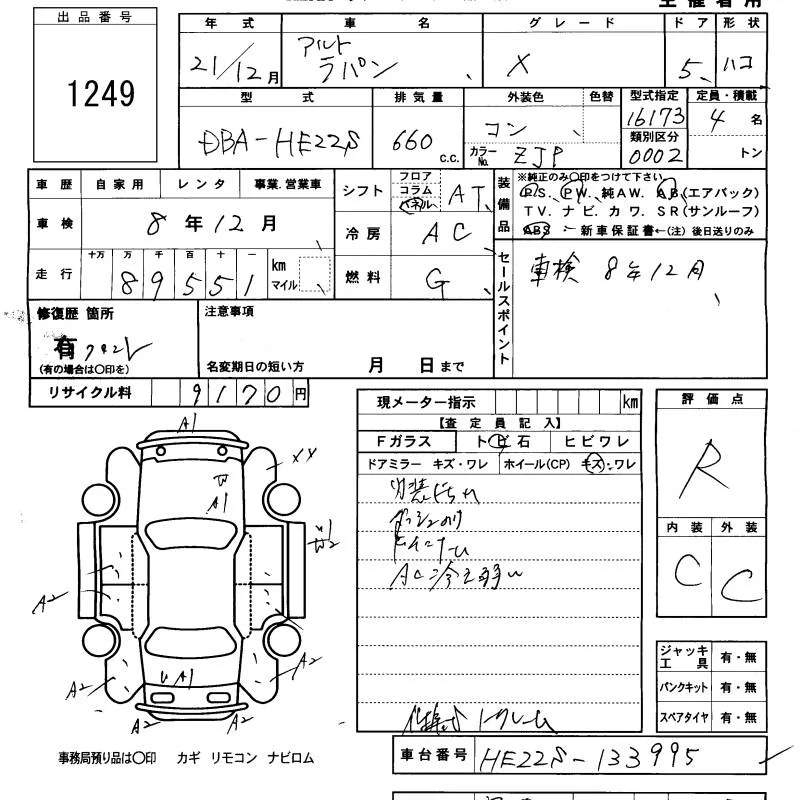 出品番号
1249
年式 車名 グレード ドア 形状
21/12月 アルト ラパン X 5 ハコ
型式 排気量 外装色 色替 型式指定 定員・積載
DBA-HE22S 660 c.c. コン 16173 4名
カラーNo. ZJP 類別区分 0002 トン
車歴 自家用 レンタ 事業.営業車
車検 8年12月
走行 十万 万 千 百 十 一
89551 km マイル
シフト フロア コラム パネル AT
冷房 AC
燃料 G
装備品 ※純正のみ○印をつけて下さい。
P.S. P.W. 純AW. A.B(エアバック)
TV. ナビ. カワ. SR(サンルーフ)
ABS ー新車保証書←(注) 後日送りのみ
セールスポイント
車検 8年12月
修復歴 箇所
有
(有の場合は○印を)
注意事項
名変期日の短い方 月 日まで
リサイクル料 9170円
現メーター指示 km
【査定員記入】
Fガラス ト ビ 石 ヒビワレ
ドアミラー キズ・ワレ ホイール(CP) キズ・ワレ
内装
AC冷え弱い
評価点
R
内装 外装
C C
ジャッキ工具 有・無
パンクキット 有・無
スペアタイヤ 有・無
A1
XX
W
A1
W2
A2
A2
A2
A1
A2
A2
A2
事務局預り品は○印 カギ リモコン ナビロム
車台番号 HE22S-133995